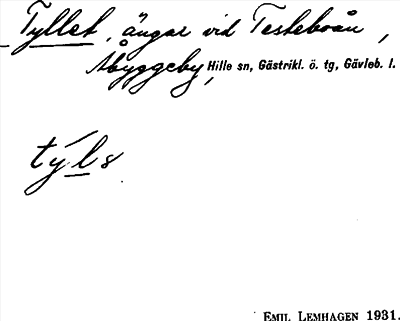 Tyllet, ängar vid Testeboån,
Åbyggeby, Hille sn, Gästrikl. ö. tg, Gävleb. l.
týls
EMIL LEMHAGEN 1931.